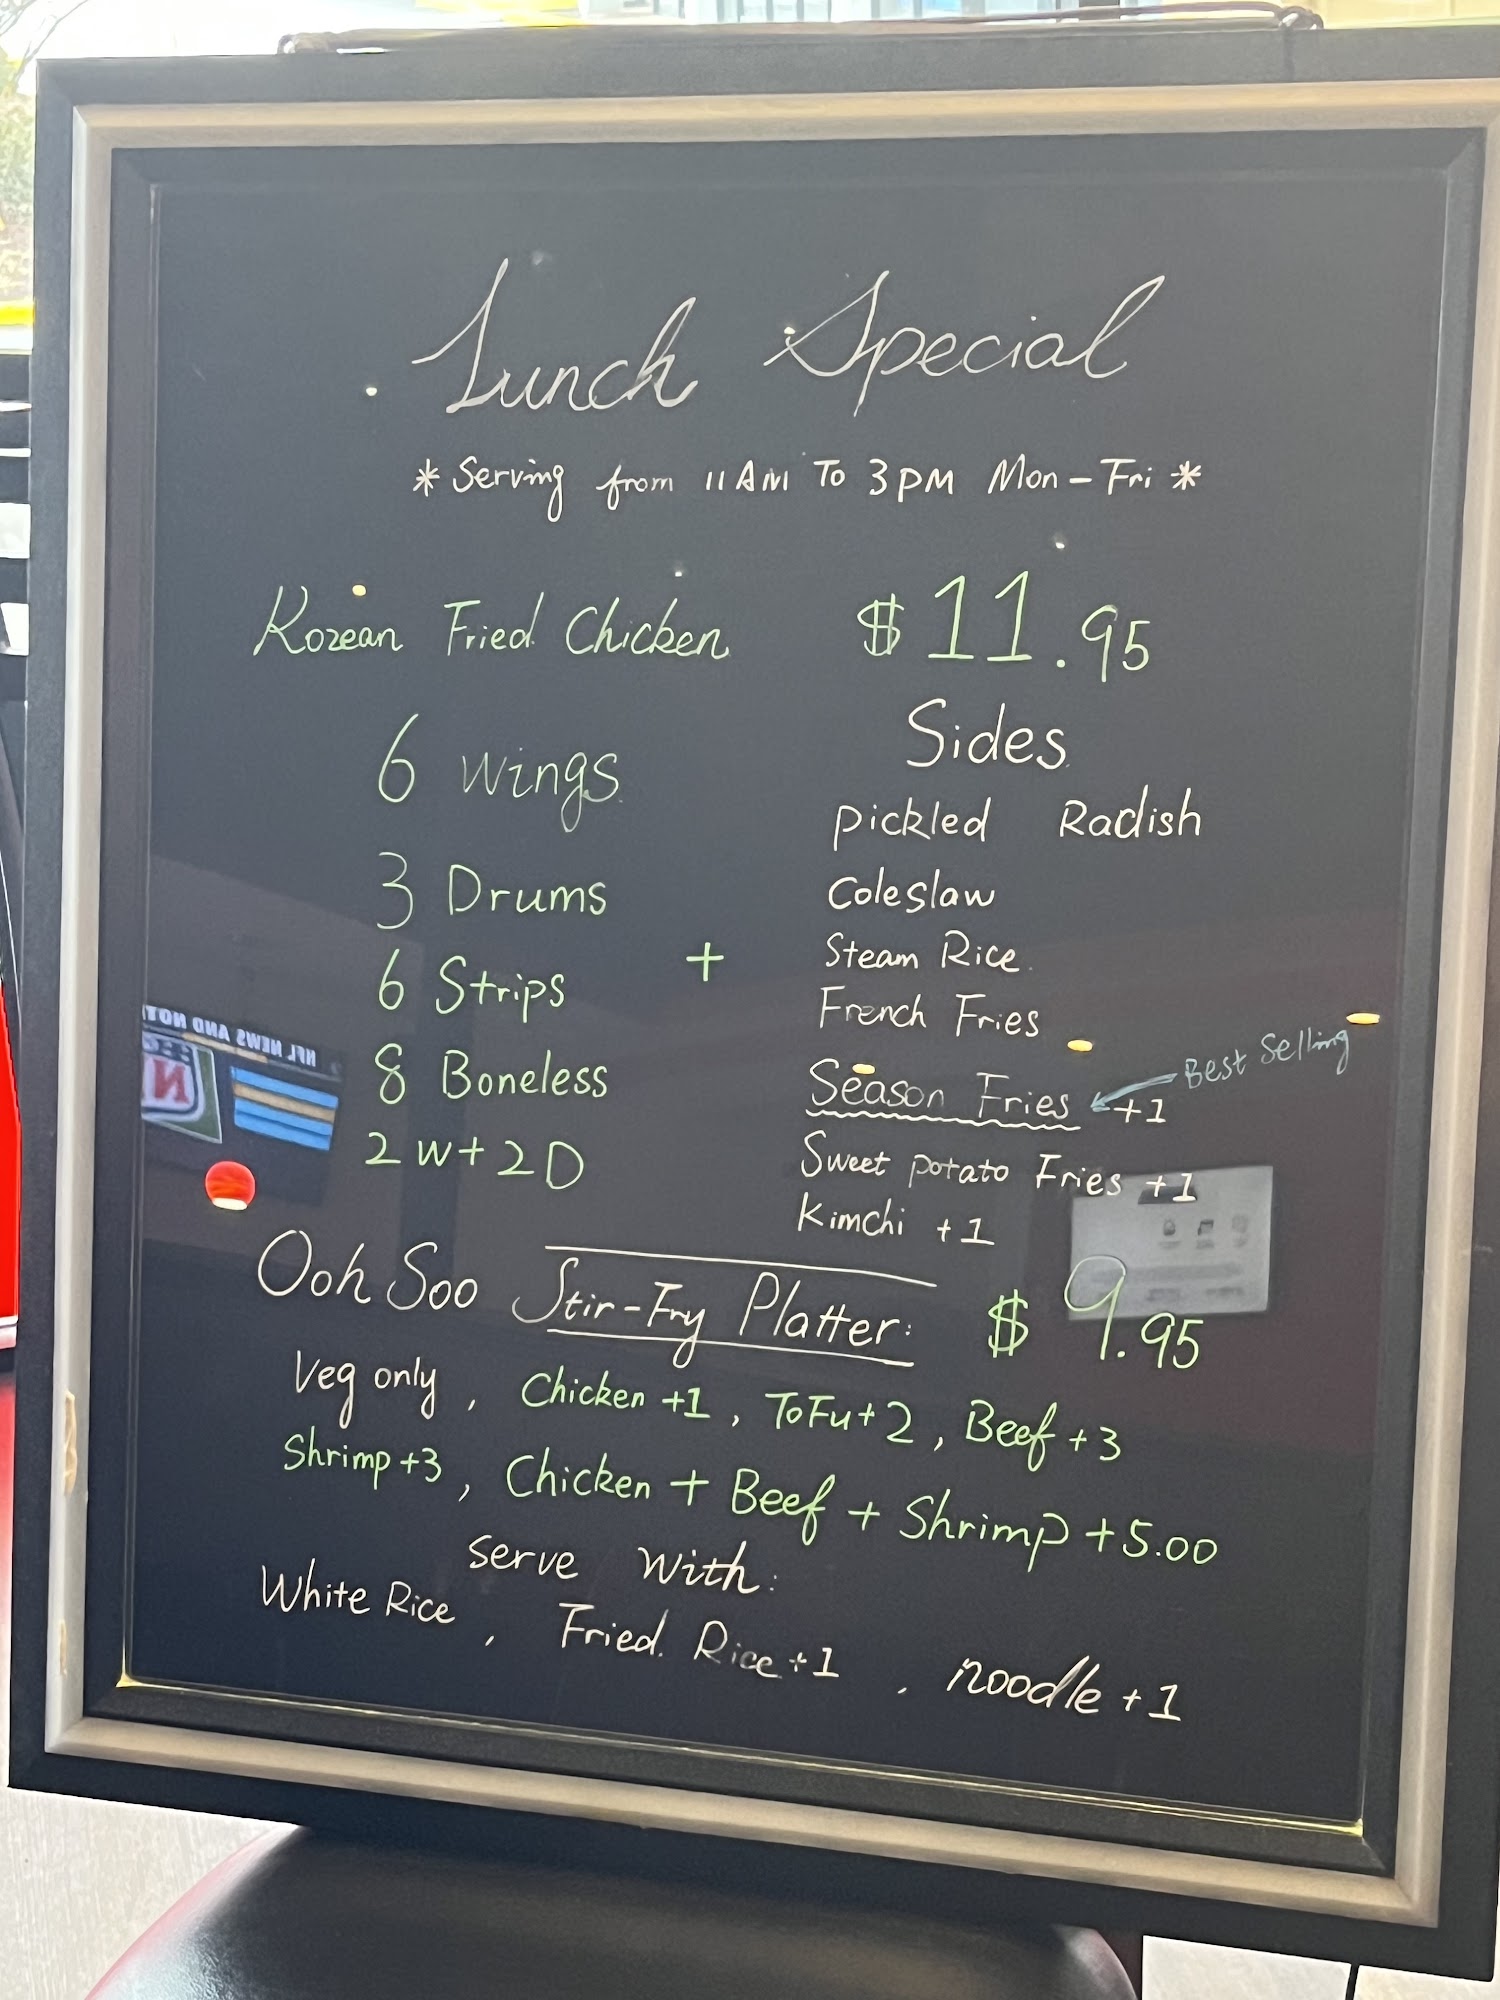 Lunch Special
* Serving from 11AM TO 3PM Mon-Fri *
Korean Fried Chicken $11.95
6 Wings
3 Drums
6 Strips
8 Boneless
2W+2D
+
Sides
Pickled Radish
Coleslaw
Steam Rice
French Fries
Season Fries +1
Best Selling
Sweet potato Fries +1
Kimchi +1
Ooh Soo Stir-Fry Platter: $9.95
Veg only, Chicken +1, ToFu+2, Beef+3
Shrimp+3, Chicken + Beef + Shrimp +5.00
Serve With:
White Rice, Fried Rice+1, noodle+1
NFL NEWS AND NOT